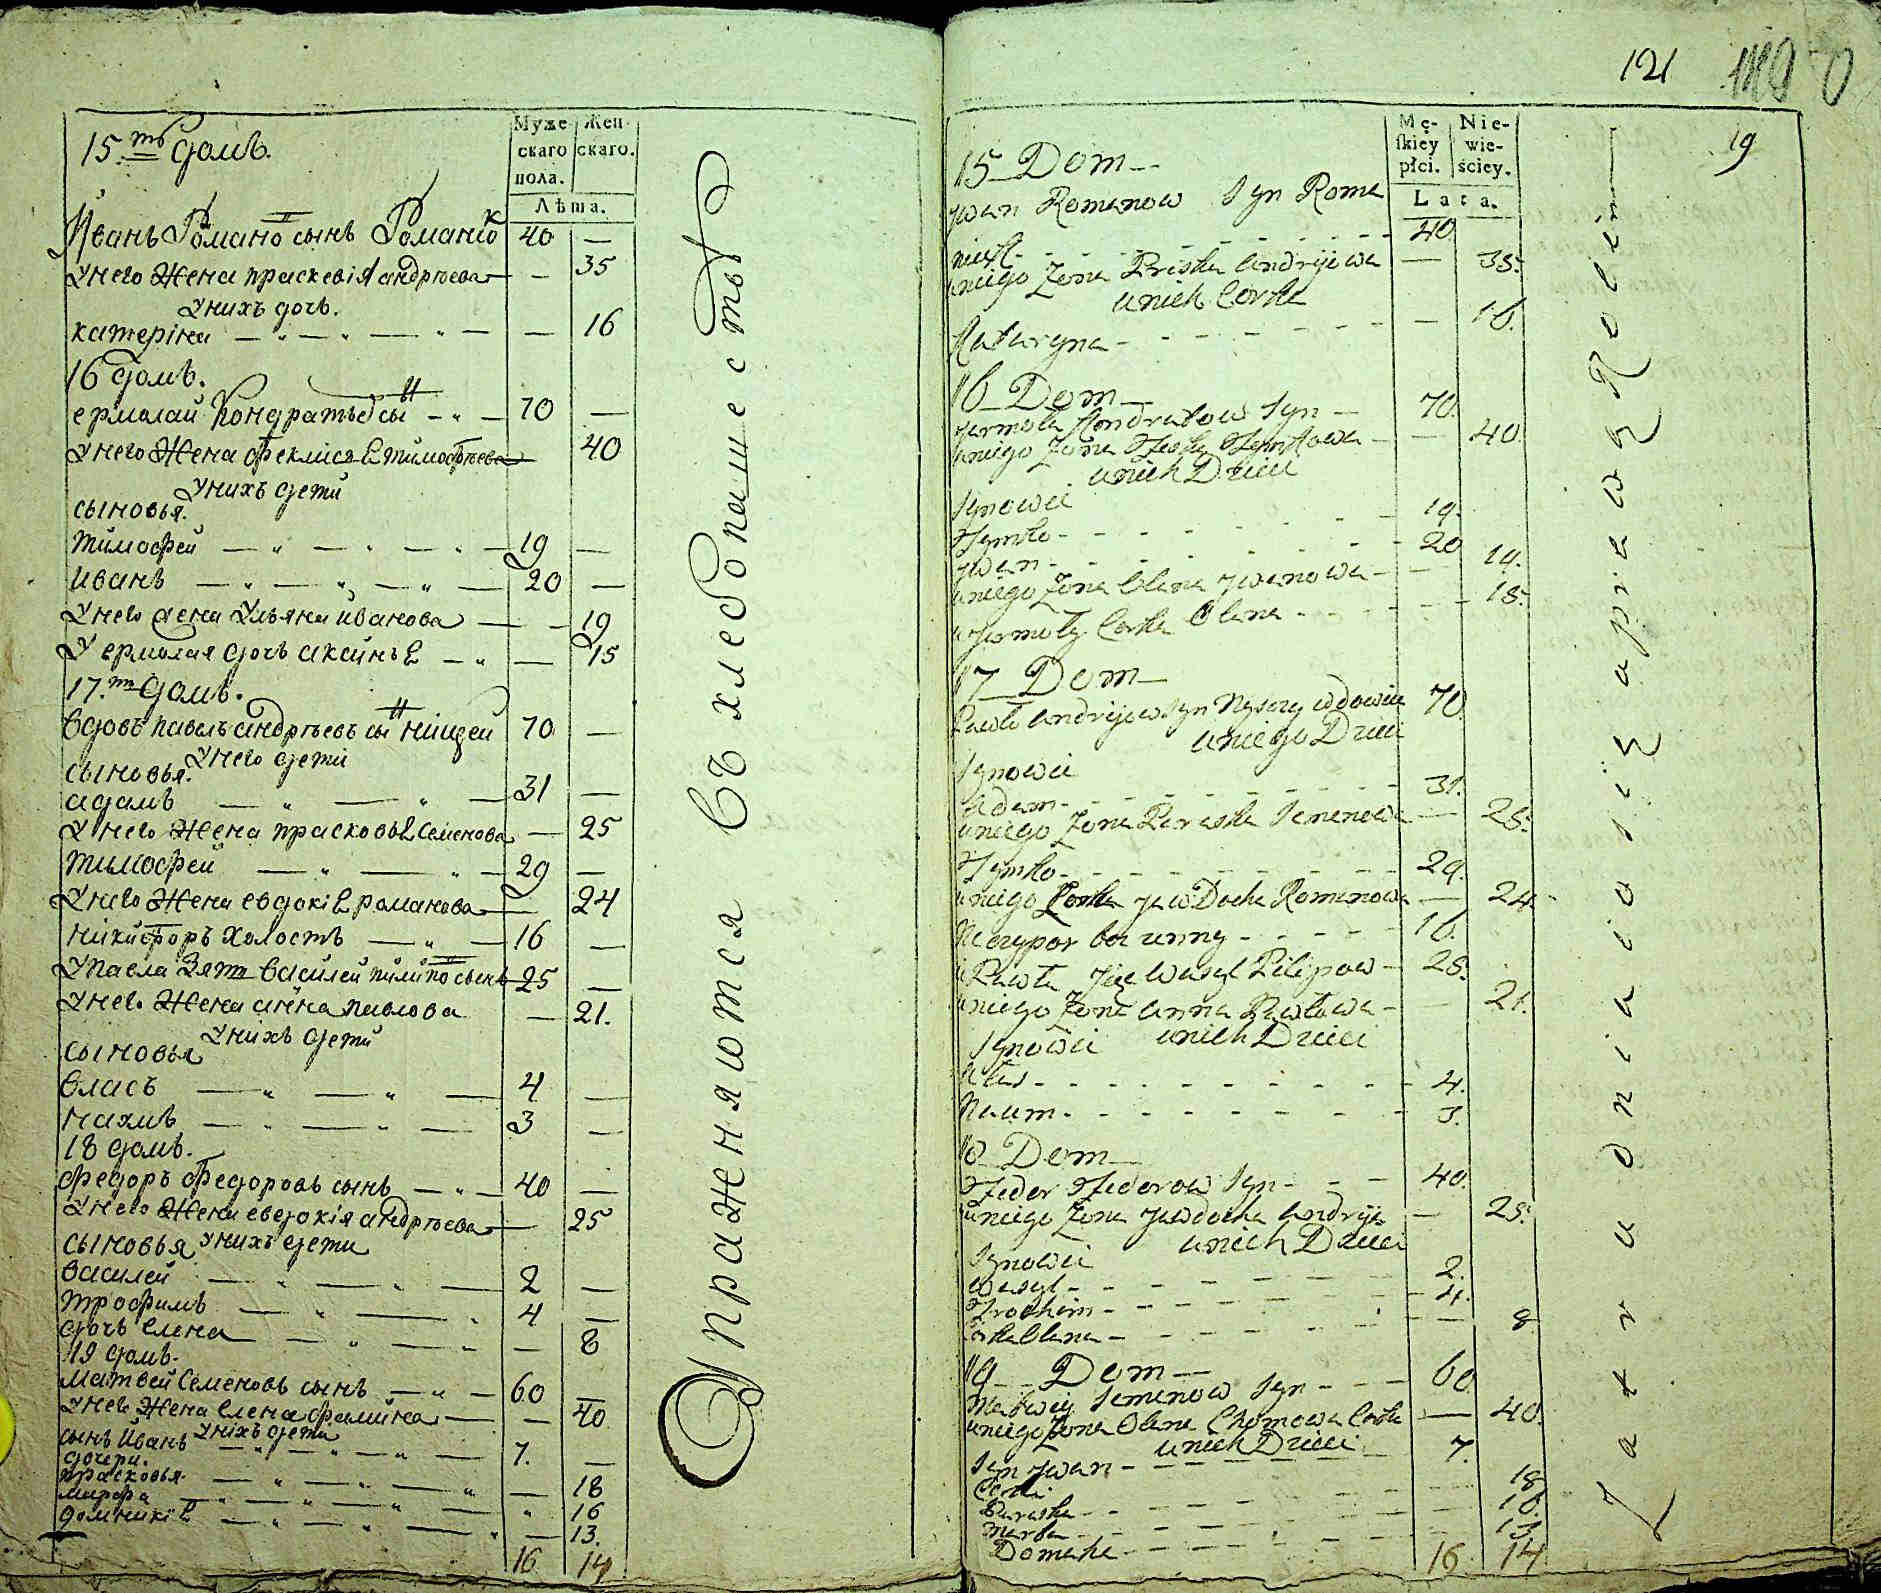 15.тъ домъ.
Муже-
скаго
пола.
Жен-
скаго.
Лѣта.
Иванъ Романо сынъ Романко 40 —
Унего жена праскевія андрѣева — 35
Унихъ дочь.
катеріна — „ — „ — „ — — 16
16 домъ.
ермолай Кондратьев сы — „ — 70 —
Унего жена феклися тимофѣева — 40
Унихъ дети
сыновья.
тимофей — „ — „ — „ — 19 —
Иванъ — „ — „ — „ — 20 —
Унего жена Ульяна иванова — — 19
У ермолая дочь аксинья — „ — 15
17.тъ домъ.
вдовъ павелъ андрѣевъ сы нищей 70 —
Унего дети
сыновья.
адамъ — „ — „ — 31 —
Унего жена прасковья Семенова — 25
тимофей — „ — „ — 29 —
Унего жена евдокія романова — 24
никифоръ холостъ — „ — 16 —
Упавла зять василей пилипо сынъ 25 —
Унего жена анна павлова — 21.
Унихъ дети
сыновья
власъ — „ — „ — 4 —
наумъ — „ — „ — 3 —
18 домъ.
федоръ Федоровъ сынъ — „ — 40 —
Унего жена евдокія андрѣева — 25
сыновья Унихъ дети
василей — „ — „ — 2 —
трофимъ — „ — „ — 4 —
дочь елена — „ — „ — — 8
19 домъ.
матвей Семеновъ сынъ — „ — 60 —
Унего жена елена фамина — — 40
Унихъ дети
сынъ иванъ — „ — „ — „ — 7. —
дочери.
прасковья — „ — „ — „ — 18
марфа — „ — „ — „ — „ 16
домникія — „ — „ — „ — 13.
16 14
Упражняются въ хлебопашестве
121
19
15 Dom —
Mę-
skiey
płci.
Nie-
wie-
ściey.
Lata.
Jwan Romanow Syn Roma
niuk - - - - - 40
uniego Zona Priska Andrijowa — 35.
unich Corka
Kataryna - - - - - — 16.
16 Dom —
Jarmoła Kondratow Syn — 70.
uniego Zona Tymkowa — — 40
unich Dzieci
Synowie
Tymko - - - - - 19.
Jwan - - - - - 20
uniego Zona Olana Jwanowa — — 19.
uJarmoły Corka Olena - - - - 15.
17 Dom —
Pawło Andrijow Syn Nyszczy wdowiec 70
uniego Dzieci
Synowie
Adam - - - - - 31.
uniego Zona Paraska Semenowa — 25.
Tymko - - - - - 29.
uniego Jawdocha Romanowa — 24
Neczypor bez zenny - - - - 16.
u Pawła Zięc Wasyl Pilipow — 25.
uniego Zona Anna Pawłowa — — 21.
Synowie unich Dzieci
Ułas - - - - - 4.
Naum - - - - - 3.
18 Dom —
Fedor Fedorow Syn - - - 40.
uniego Zona Jawdocha Andrije — 25.
unich Dzieci
Synowie
Wasyl - - - - - 2.
Trochim - - - - - 4.
Corka Olena - - - - - 8
19 Dom —
Matwiej Semenow Syn - - - 60.
uniego Zona Olena Chomowa Corka — 40.
unich Dzieci
Syn Jwan - - - - - 7.
Corki
Paraska - - - - - 18
Marta - - - - - 16.
Domcha - - - - - 13.
16 14
Zatrudniaią się uprawą Roli —